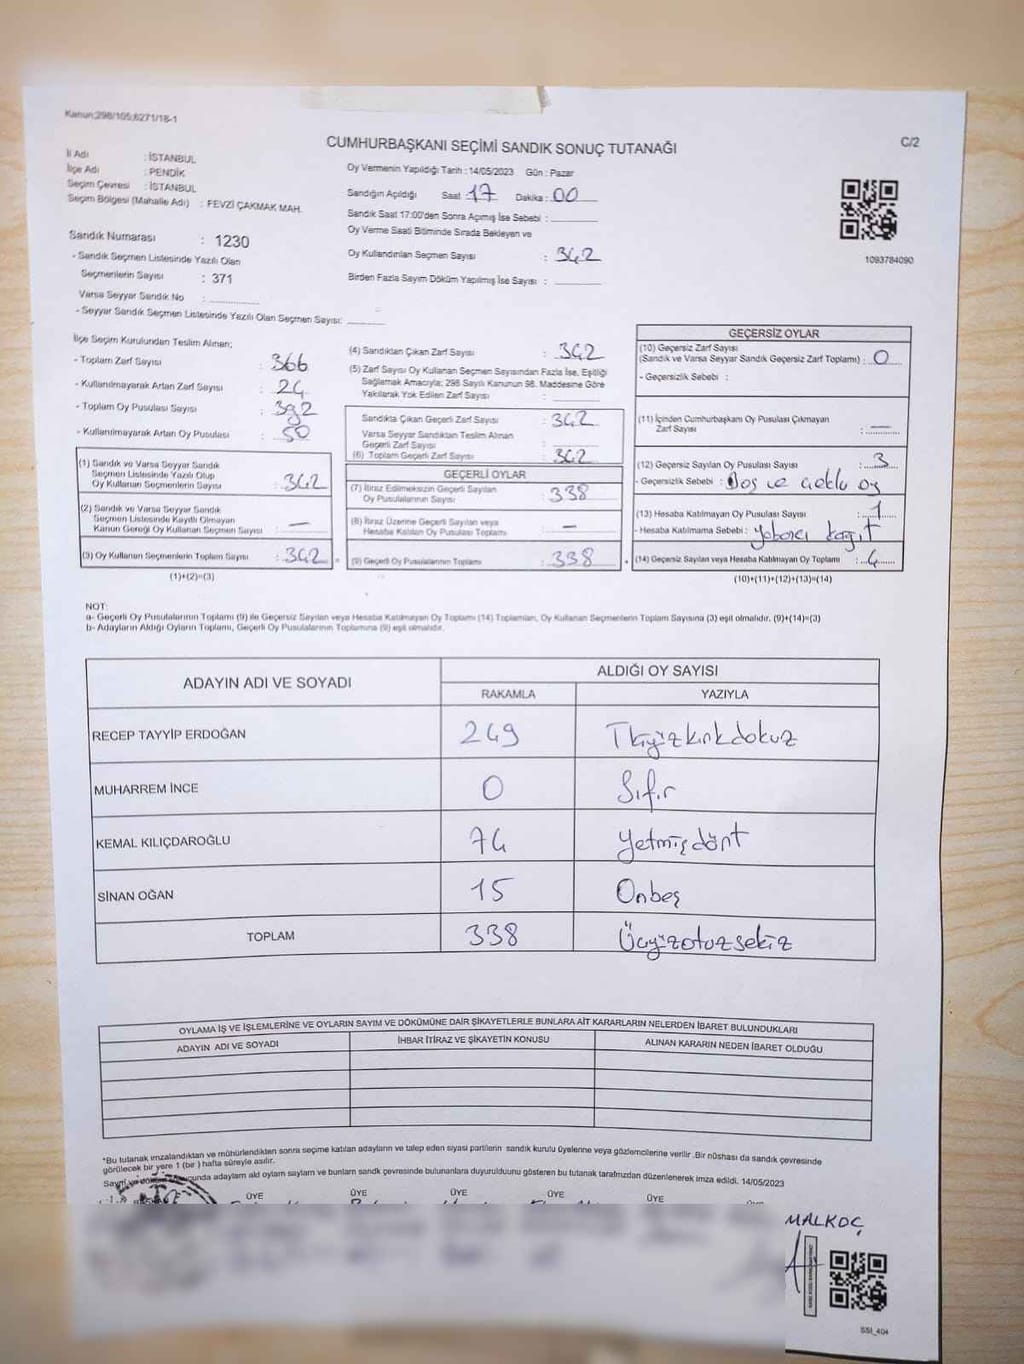 Kanun;298/105;6271/18-1
C/2
CUMHURBAŞKANI SEÇİMİ SANDIK SONUÇ TUTANAĞI
İl Adı : İSTANBUL
İlçe Adı : PENDİK
Seçim Çevresi : İSTANBUL
Seçim Bölgesi (Mahalle Adı) : FEVZİ ÇAKMAK MAH.
Sandık Numarası : 1230
- Sandık Seçmen Listesinde Yazılı Olan
Seçmenlerin Sayısı : 371
Varsa Seyyar Sandık No :
- Seyyar Sandık Seçmen Listesinde Yazılı Olan Seçmen Sayısı:
Oy Vermenin Yapıldığı Tarih : 14/05/2023 Gün : Pazar
Sandığın Açıldığı Saat : 17 Dakika : 00
Sandık Saat 17:00'den Sonra Açımış İse Sebebi :
Oy Verme Saati Bitiminde Sırada Bekleyen ve
Oy Kullandırılan Seçmen Sayısı : 342
Birden Fazla Sayım Döküm Yapılmış İse Sayısı :
1093784090
İlçe Seçim Kurulundan Teslim Alınan;
- Toplam Zarf Sayısı : 366
- Kullanılmayarak Artan Zarf Sayısı : 24
- Toplam Oy Pusulası Sayısı : 392
- Kullanılmayarak Artan Oy Pusulası : 50
(1) Sandık ve Varsa Seyyar Sandık
Seçmen Listesinde Yazılı Olup
Oy Kullanan Seçmenlerin Sayısı : 342
(2) Sandık ve Varsa Seyyar Sandık
Seçmen Listesinde Kayıtlı Olmayan
Kanun Gereği Oy Kullanan Seçmen Sayısı : —
(3) Oy Kullanan Seçmenlerin Toplam Sayısı : 342 =
(1)+(2)=(3)
(4) Sandıktan Çıkan Zarf Sayısı : 342
(5) Zarf Sayısı Oy Kullanan Seçmen Sayısından Fazla İse, Eşitliği
Sağlamak Amacıyla; 298 Sayılı Kanunun 98. Maddesine Göre
Yakılarak Yok Edilen Zarf Sayısı :
Sandıkta Çıkan Geçerli Zarf Sayısı : 342
Varsa Seyyar Sandıktan Teslim Alınan
Geçerli Zarf Sayısı :
(6) Toplam Geçerli Zarf Sayısı : 342
GEÇERLİ OYLAR
(7) İtiraz Edilmeksizin Geçerli Sayılan
Oy Pusulalarının Sayısı : 338
(8) İtiraz Üzerine Geçerli Sayılan veya
Hesaba Katılan Oy Pusulası Toplamı : —
(9) Geçerli Oy Pusulalarının Toplamı : 338 +
GEÇERSİZ OYLAR
(10) Geçersiz Zarf Sayısı
(Sandık ve Varsa Seyyar Sandık Geçersiz Zarf Toplamı) : 0
- Geçersizlik Sebebi :
(11) İçinden Cumhurbaşkanı Oy Pusulası Çıkmayan
Zarf Sayısı : —
(12) Geçersiz Sayılan Oy Pusulası Sayısı : 3
- Geçersizlik Sebebi : Boş ve
(13) Hesaba Katılmayan Oy Pusulası Sayısı : 1
- Hesaba Katılmama Sebebi : yabancı kağıt
(14) Geçersiz Sayılan veya Hesaba Katılmayan Oy Toplamı : 4
(10)+(11)+(12)+(13)=(14)
NOT:
a- Geçerli Oy Pusulalarının Toplamı (9) ile Geçersiz Sayılan veya Hesaba Katılmayan Oy Toplamı (14) Toplamları, Oy Kullanan Seçmenlerin Toplam Sayısına (3) eşit olmalıdır. (9)+(14)=(3)
b- Adayların Aldığı Oyların Toplamı, Geçerli Oy Pusulalarının Toplamına (9) eşit olmalıdır.
ADAYIN ADI VE SOYADI
ALDIĞI OY SAYISI
RAKAMLA YAZIYLA
RECEP TAYYİP ERDOĞAN 249 İkiyüzkırkdokuz
MUHARREM İNCE 0 Sıfır
KEMAL KILIÇDAROĞLU 74 Yetmişdört
SİNAN OĞAN 15 Onbeş
TOPLAM 338 Üçyüzotuzsekiz
OYLAMA İŞ VE İŞLEMLERİNE VE OYLARIN SAYIM VE DÖKÜMÜNE DAİR ŞİKAYETLERLE BUNLARA AİT KARARLARIN NELERDEN İBARET BULUNDUKLARI
ADAYIN ADI VE SOYADI İHBAR İTİRAZ VE ŞİKAYETİN KONUSU ALINAN KARARIN NEDEN İBARET OLDUĞU
*Bu tutanak imzalandıktan ve mühürlendikten sonra seçime katılan adayların ve talep eden siyasi partilerin sandık kurulu üyelerine veya gözlemcilerine verilir .Bir nüshası da sandık çevresinde
görülecek bir yere 1 (bir ) hafta süreyle asılır.
unda adayların aldığı oyların sayılarını ve bunların sandık çevresinde bulunanlara duyurulduğunu gösteren bu tutanak tarafımızdan düzenlenerek imza edildi. 14/05/2023
ÜYE ÜYE ÜYE ÜYE ÜYE
MALKOÇ
SSİ_404